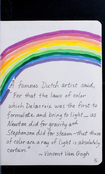 A famous Dutch artist said,
"For that the laws of color
which Delacroix was the first to
formulate and bring to light... as
Newton did for gravity and
Stephenson did for steam—that those
of color are a ray of light is absolutely
certain."
—Vincent Van Gogh